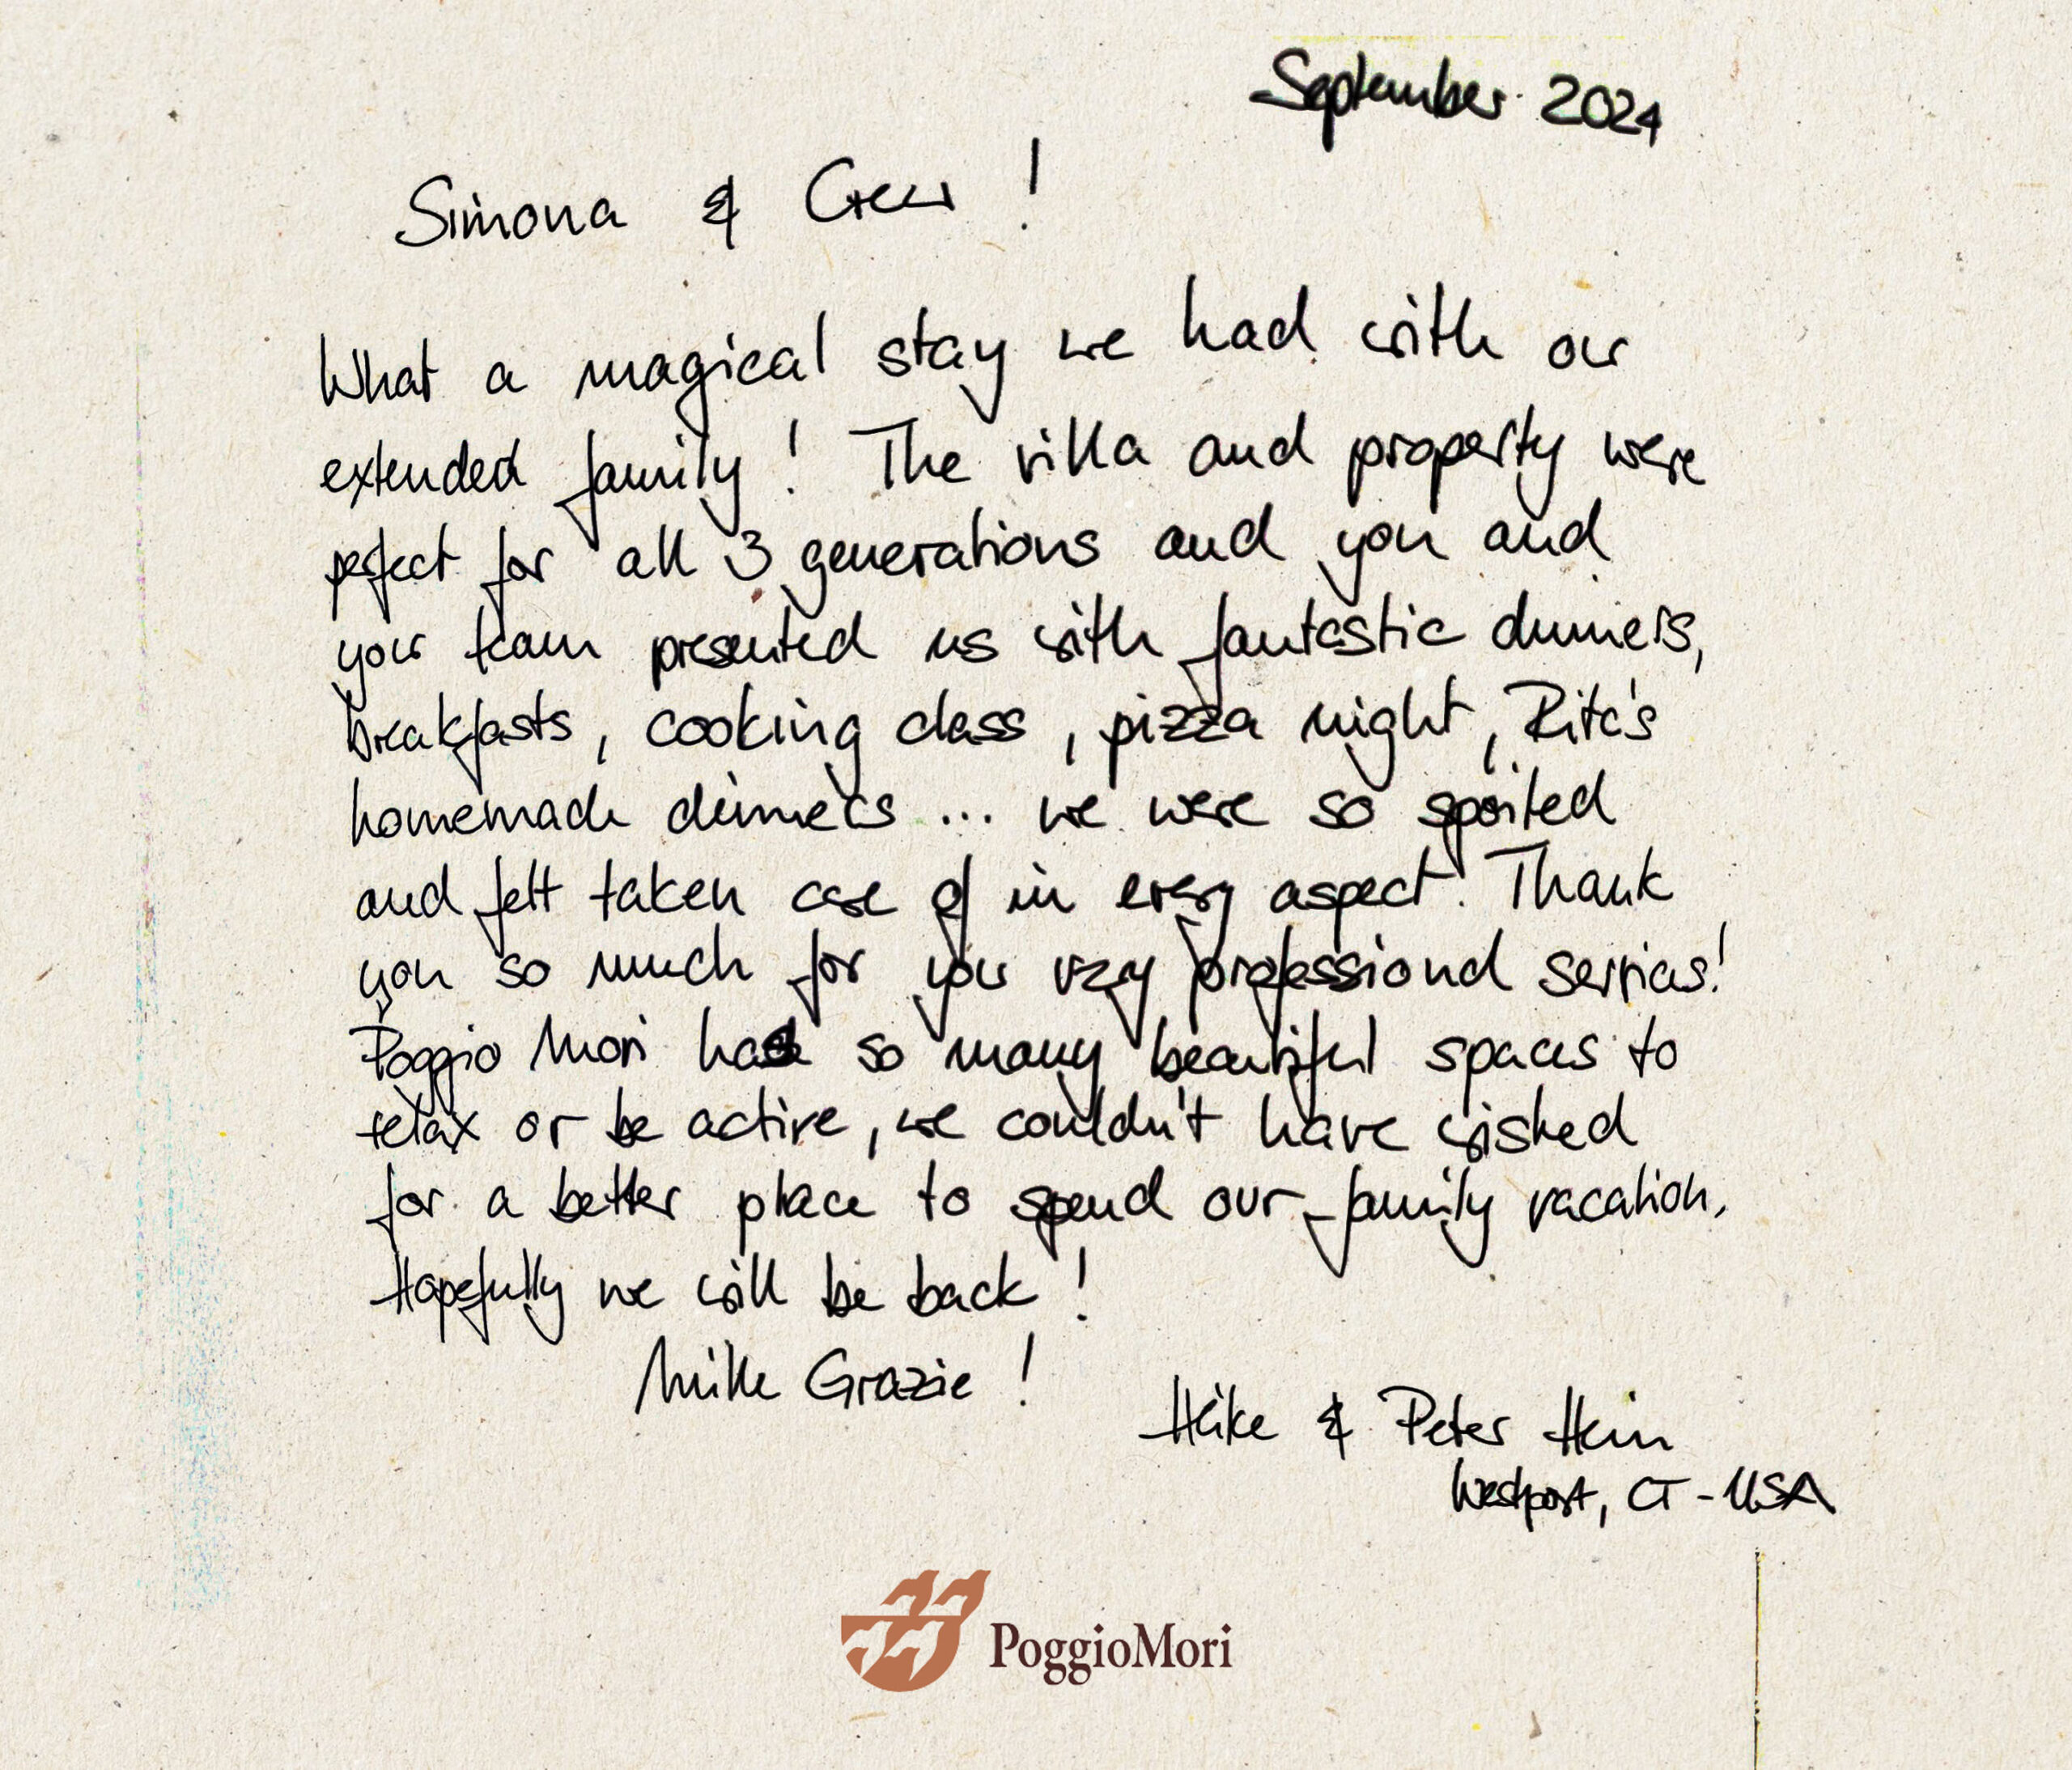 September 2024
Simona & Crew !
What a magical stay we had with our
extended family ! The villa and property were
perfect for all 3 generations and you and
your team presented us with fantastic dinners,
breakfasts, cooking class, pizza night, Rita's
homemade dinners ... we were so spoiled
and felt taken care of in every aspect! Thank
you so much for your very professional services!
Poggio Mori has so many beautiful spaces to
relax or be active, we couldn't have wished
for a better place to spend our family vacation.
Hopefully we will be back !
Mille Grazie !
Heike & Peter Hein
Westport, CT - USA
PoggioMori